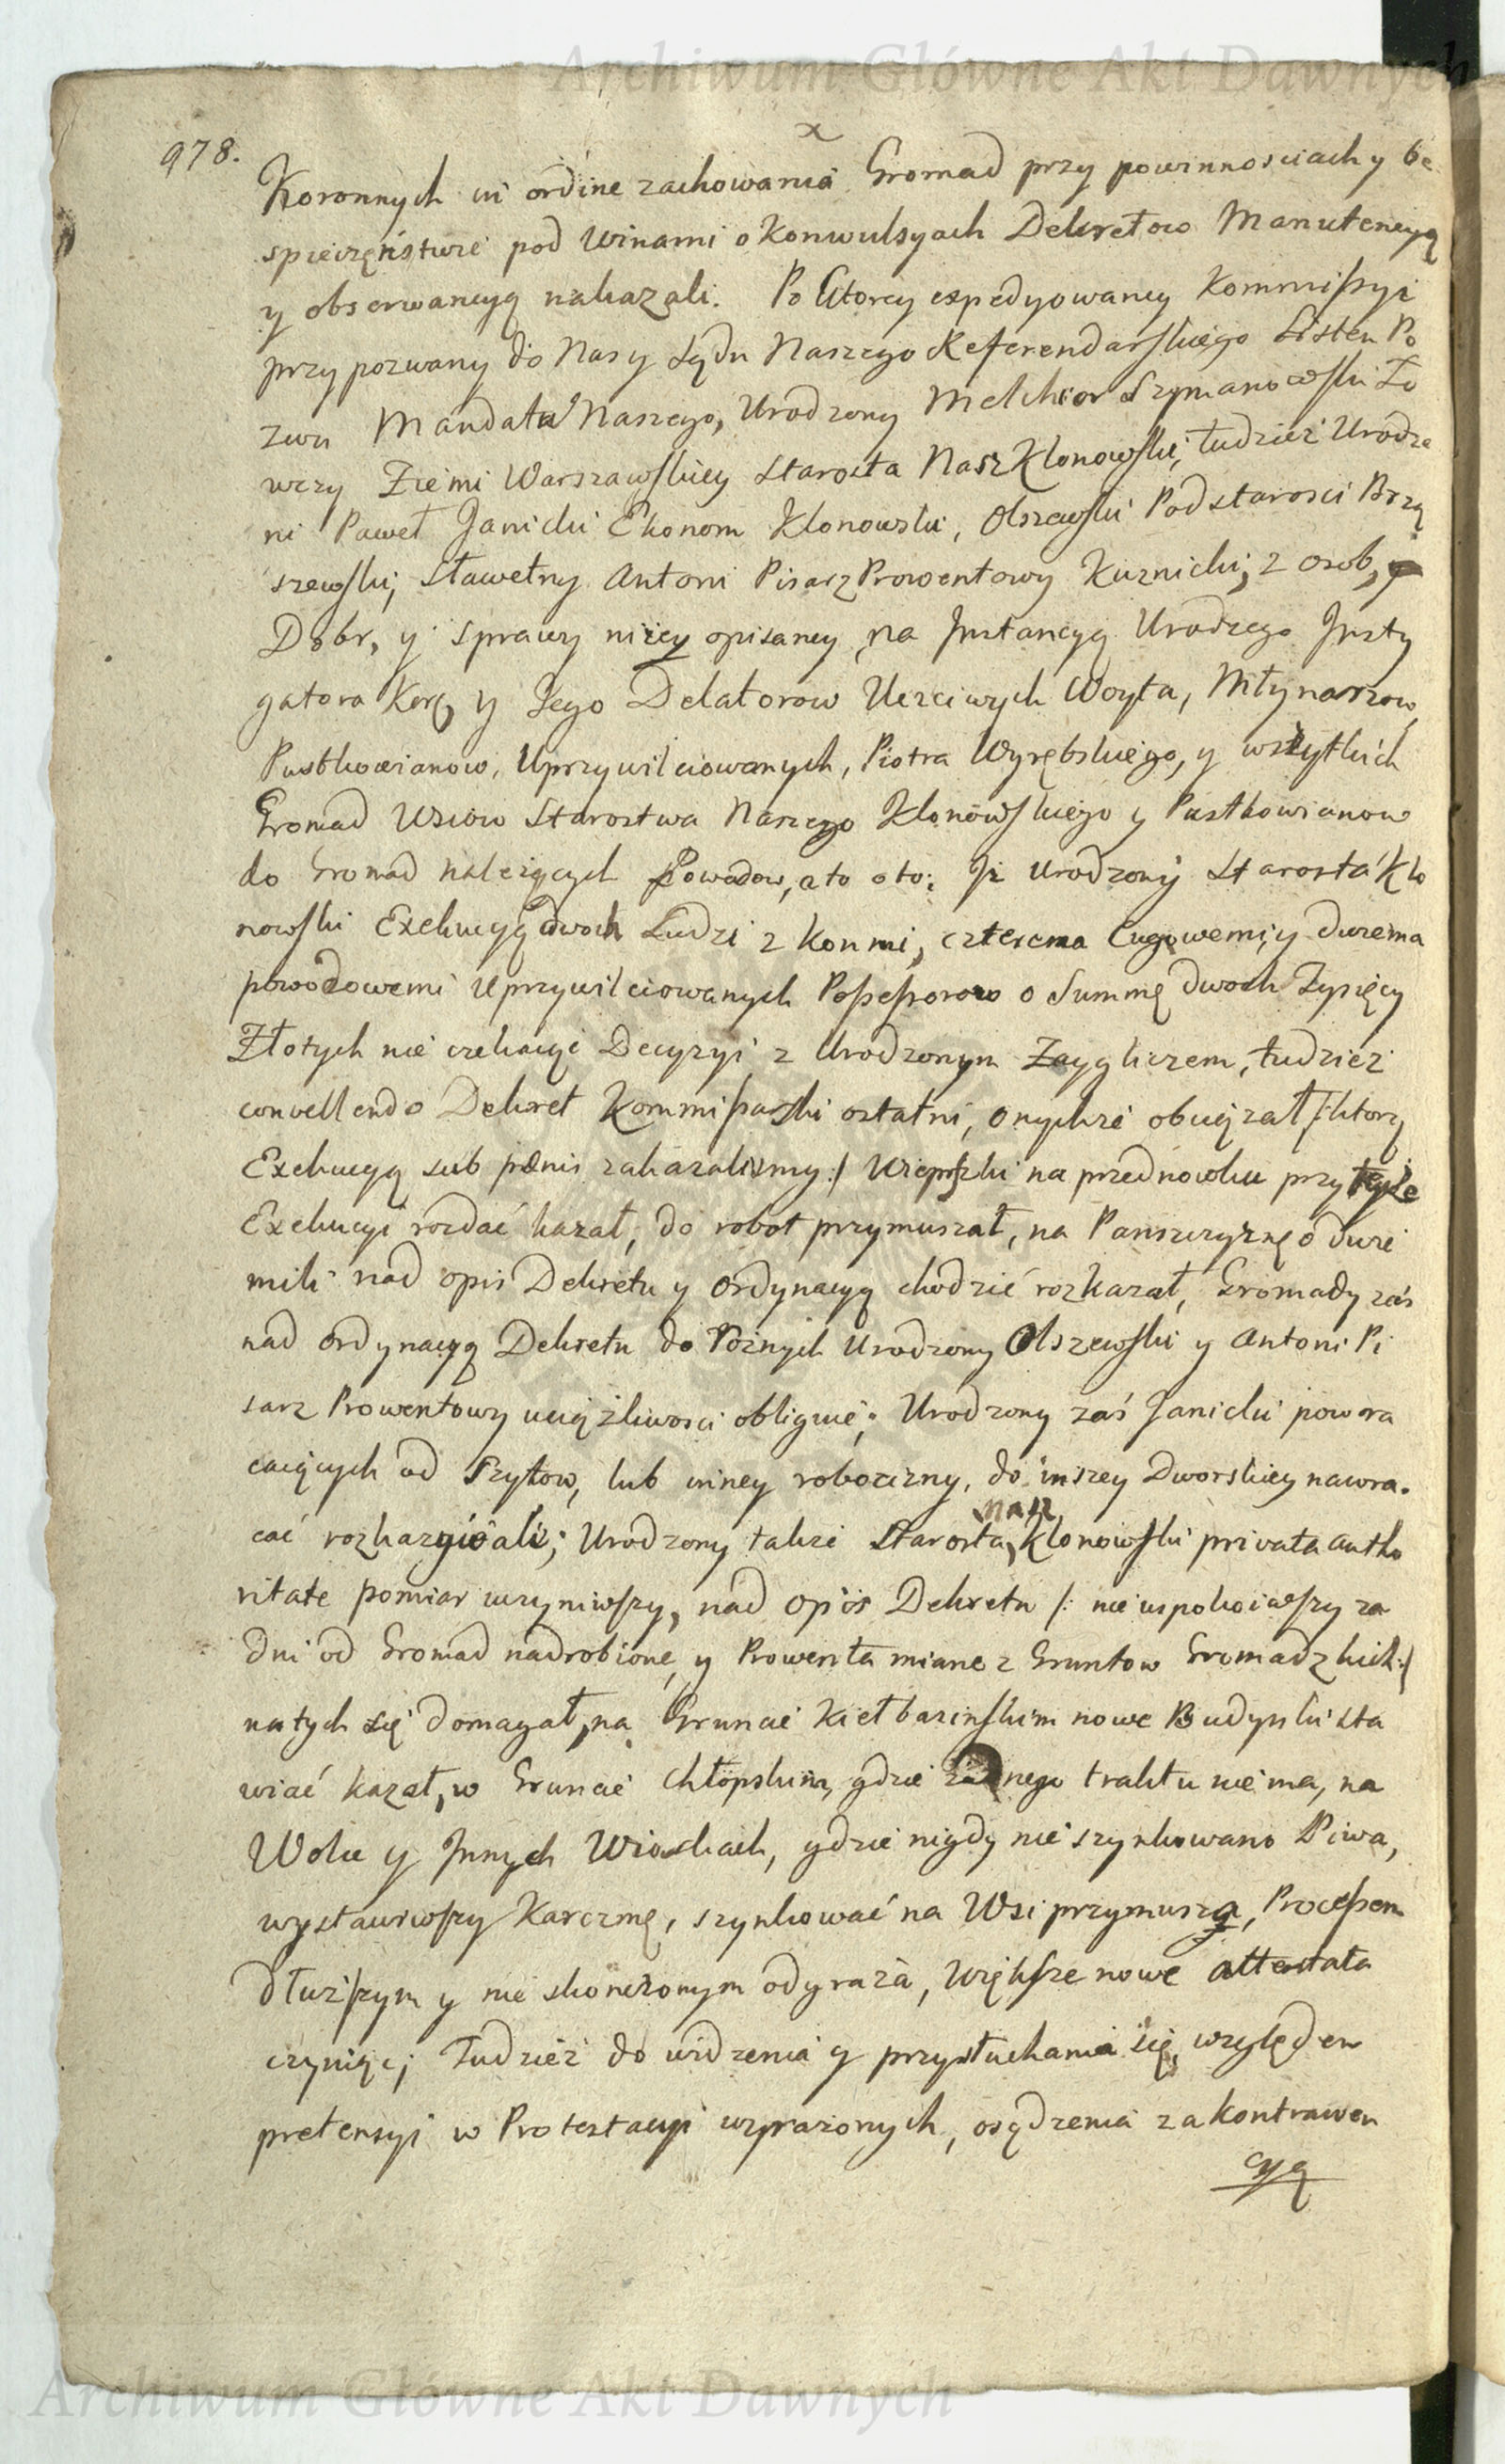 Archiwum Główne Akt Dawnych
x
978.
Koronnych in ordine zachowania Gromad przy powinnosciach y be
spieczęństwie pod winami o Konwulsyach Dekretow Manutencyą
y obserwancyą nakazali. Po ktorey expedyowaney Kommißyi
przypozwany do Nas y Sądu Naszego Referendarskiego Listem Po
zwu Mandatu Naszego, Urodzony Melchior Szymanowski Ło
wczy Ziemi Warszawskiey Starosta Nasz Klonowski, tudzież Urodze
ni Paweł Janicki Ekonom Klonowski, Olszewski Podstarosci Brzą
szewski, Sławetny Antoni Pisarz Prowentowy Kuznicki, z osob,
Dobr, y sprawy niżey opisaney, na Instancyą Urodzego Insty
gatora Korg y Jego Delatorow Uczciwych Woyta, Młynarzow,
Pustkowianow, Uprzywileiowanych, Piotra Wyrębskiego, y wszytkich
Gromad Wsiow Starostwa Naszego Klonowskiego y Pustkowianow
do Gromad należących Powodow, a to oto: Iż Urodzony Starosta Klo
nowski Exekucyą dwoch Ludzi z konmi, czterema Cugowemi, y dwiema
powodowemi Uprzywileiowanych Poßeßorow o Summę dwoch Tysięcy
Złotych nie czekaiąc Decyzyi z Urodzonym Zayglizem, tudzież
convellendo Dekret Kommißarski ostatni, onychże obciążał /:ktorą
Exekucyą sub pænis zakazalismy:/ Wieprzki na przednowku przy teyże
Exekucyi rozdać kazał, do robot przymuszał, na Panszczyznę o dwie
mili nad opis Dekretu y ordynacyą chodzić rozkazał, Gromady zaś
nad ordynacyą Dekretu do Roznych Urodzony Olszewski y Antoni Pi
sarz Prowentowy uciążliwosci obliguie; Urodzony zaś Janicki powra
caiących od Szytow, lub inney robocizny, do inszey Dworskiey nawra.
cać rozkazuie; Urodzony także Starosta Nasz Klonowski privata autho
ritate pomiar uczyniwszy, nad opis Dekretu /: nie uspokoiwszy za
dni od Gromad nadrobione, y Prowenta miane z Gruntow Gromadzkich:/
na tych się domagał, na Gruncie Kiełbasinskim nowe Budynki sta
wiać kazał, w Gruncie Chłopskim, gdzie żadnego traktu nie ma, na
Wolce y Innych Wioskach, gdzie nigdy nie szynkowano Piwa,
wystawiwszy Karczmę, szynkować na Wsi przymusza, Proceßem
dłuższym y nie skończonym odgraża, większe nowe attentata
czyniąc; Tudzież do widzenia y przysłuchania się, względem
pretensyi w Protestacyi wyrażonych, osądzenia za kontrawen
cyą
Archiwum Główne Akt Dawnych